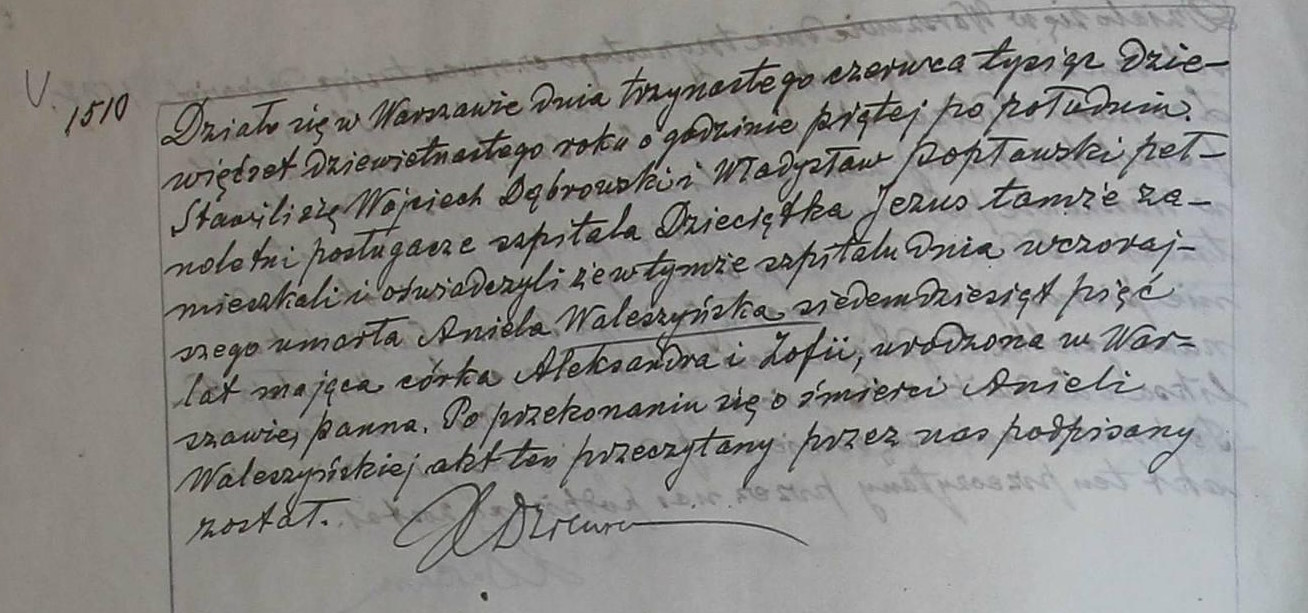 V.
1510
Działo się w Warszawie dnia trzynastego czerwca tysiąc dzie-
więćset dziewiętnastego roku o godzinie piątej po południu.
Stawili się Wojciech Dąbrowski i Władysław Popławski peł-
noletni posługacze szpitala Dzieciątka Jezus tamże za-
mieszkali i oświadczyli że w tymże szpitalu dnia wczoraj-
szego umarła Aniela Waleszyńska siedemdziesiąt pięć
lat mająca córka Aleksandra i Zofii, urodzona w War-
szawie, panna. Po przekonaniu się o śmierci Anieli
Waleszyńskiej akt ten przeczytany przez nas podpisany
został.